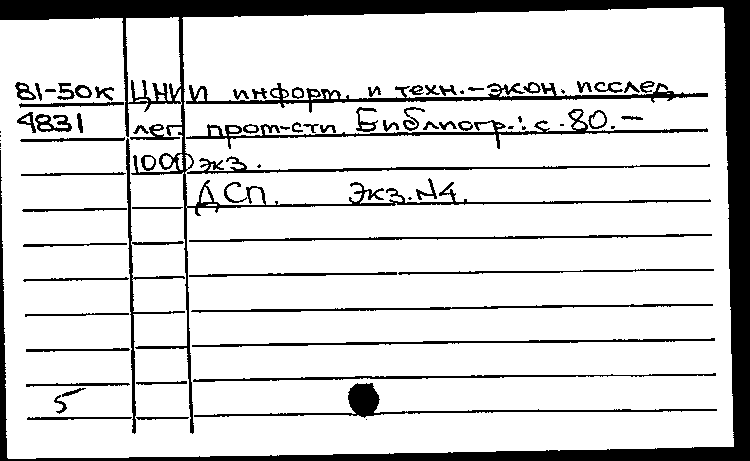 81-50к ЦНИИ информ. и техн.-экон. исслед.
4831 лег. пром-сти. Библиогр.: с. 80.–
1000 экз.
ДСП. Экз.N4.
5